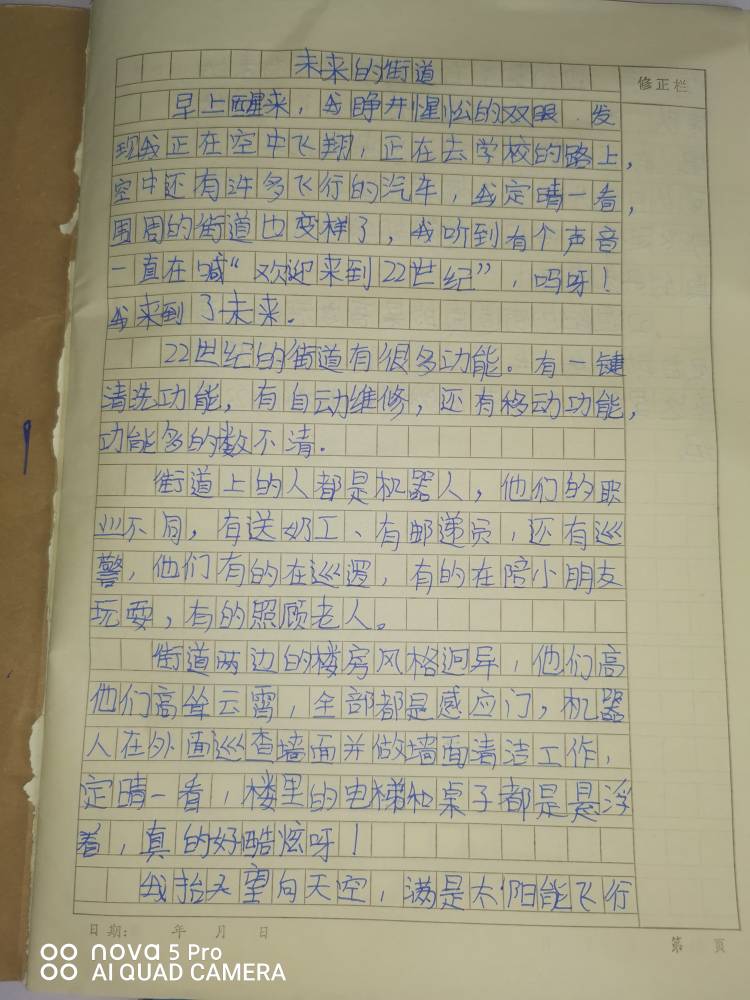 未来的街道
修正栏
早上醒来，我睁开惺忪的双眼 发
现我正在空中飞翔，正在去学校的路上，
空中还有许多飞行的汽车，我定晴一看，
围周的街道也变样了，我听到有个声音
一直在喊“欢迎来到22世纪”，吗呀！
我来到了未来.
22世纪的街道有很多功能。有一键
清洗功能，有自动维修，还有移动功能，
功能多的数不清.
街道上的人都是机器人，他们的职
业不同，有送奶工、有邮递员，还有巡
警，他们有的在巡逻，有的在陪小朋友
玩耍，有的照顾老人。
街道两边的楼房风格迥异，他们高
他们高耸云霄，全部都是感应门，机器
人在外面巡查墙面并做墙面清洁工作，
定晴一看，楼里的电梯和桌子都是悬浮
着，真的好酷炫呀！
我抬头望向天空，满是太阳能飞行
日期： 年 月 日
第 页
nova 5 Pro
AI QUAD CAMERA